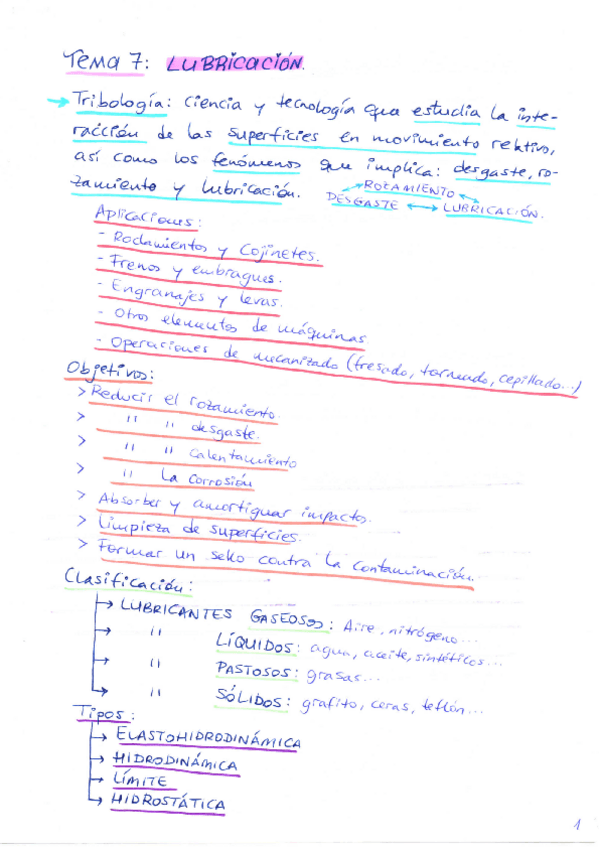 Tema 7: LUBRICACIÓN.
→ Tribología: ciencia y tecnología que estudia la inte-
racción de las superficies en movimiento relativo,
así como los fenómenos que implica: desgaste, ro-
zamiento y lubricación.
ROZAMIENTO
DESGASTE ↔ LUBRICACIÓN.
Aplicaciones:
- Rodamientos y Cojinetes.
- Frenos y embragues.
- Engranajes y levas.
- Otros elementos de máquinas
- Operaciones de mecanizado (fresado, torneado, cepillado...)
Objetivos:
> Reducir el rozamiento.
> " " desgaste.
> " " calentamiento
> " la corrosión
> Absorber y amortiguar impactos.
> Limpieza de superficies.
> Formar un sello contra la contaminación.
Clasificación:
→ LUBRICANTES GASEOSOS: Aire, nitrógeno...
→ " LÍQUIDOS: agua, aceite, sintéticos...
→ " PASTOSOS: grasas...
→ " SÓLIDOS: grafito, ceras, teflón...
Tipos:
→ ELASTOHIDRODINÁMICA
→ HIDRODINÁMICA
→ LÍMITE
→ HIDROSTÁTICA
1